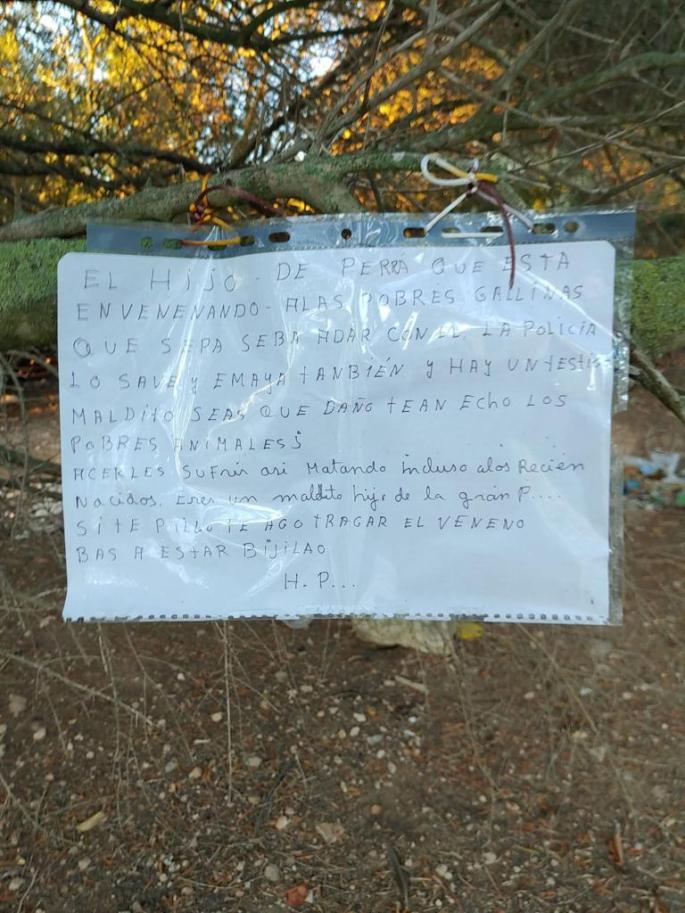 EL HIJO DE PERRA QUE ESTA
ENVENENANDO- ALAS POBRES GALLINAS
QUE SEPA SEBA ADAR CON EL. LA POLICIA
LO SAVE y EMAYA tANBIÉN y HAY UN tEStiGO
MALDItO SEAS QUE DAÑO tEAN ECHO LOS
POBRES ANIMALES¡
ACERLES SuFrir asi Matando incluso alos Recien
Nacidos. Eres un maldito hijo de la gran P....
Si tE PiLLO tE AGO tRAGAR EL VENENO
BAS A ESTAR BIJILAO
H. P...